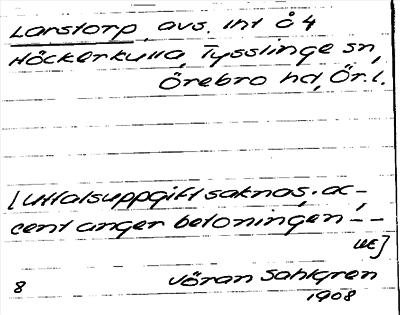 Larstorp, avs. int å 4
Höckerkulla, Tysslinge sn,
Örebro hd, Ör. l.
[Uttalsuppgift saknas; ac-
cent anger betoningen – –
WE]
8 Jöran Sahlgren
1908